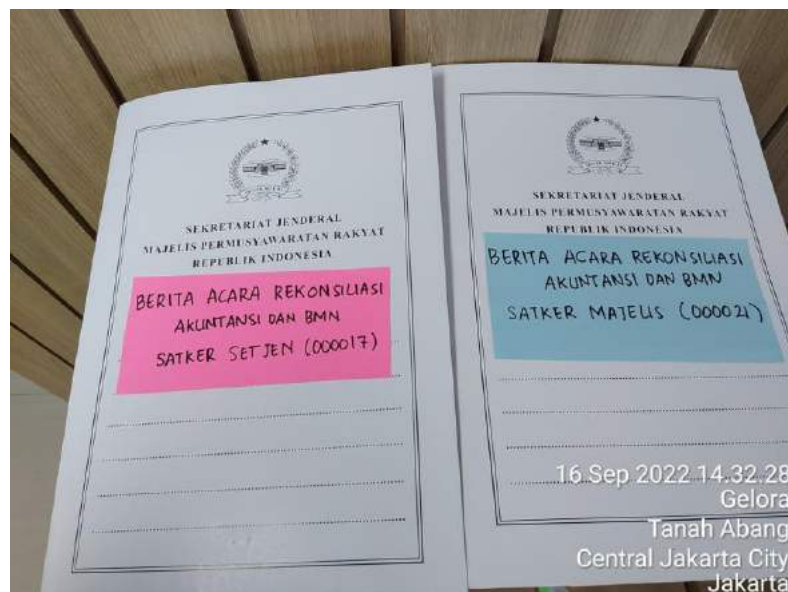 SEKRETARIAT JENDERAL
MAJELIS PERMUSYAWARATAN RAKYAT
REPUBLIK INDONESIA
BERITA ACARA REKONSILIASI
AKUNTANSI DAN BMN
SATKER SETJEN (000017)
SEKRETARIAT JENDERAL
MAJELIS PERMUSYAWARATAN RAKYAT
REPUBLIK INDONESIA
BERITA ACARA REKONSILIASI
AKUNTANSI DAN BMN
SATKER MAJELIS (000021)
16 Sep 2022 14.32.28
Gelora
Tanah Abang
Central Jakarta City
Jakarta